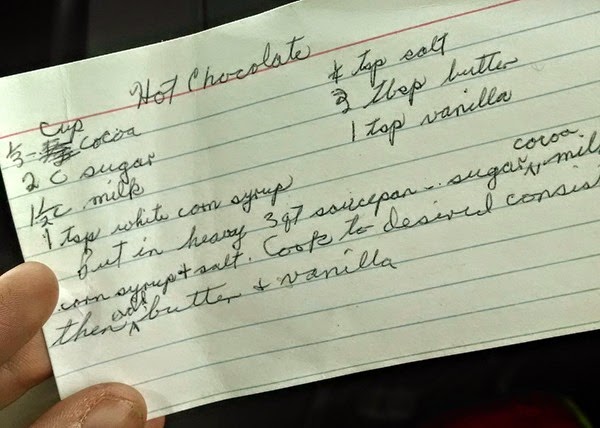 Hot Chocolate
1/3 - cup cocoa
2 c sugar
1 1/2 c. milk
1 tsp white corn syrup
tsp salt
3 tbsp butter
1 tsp vanilla
Put in heavy 3 qt saucepan - sugar, cocoa, mil
corn syrup + salt. Cook to desired consist
then add butter + vanilla